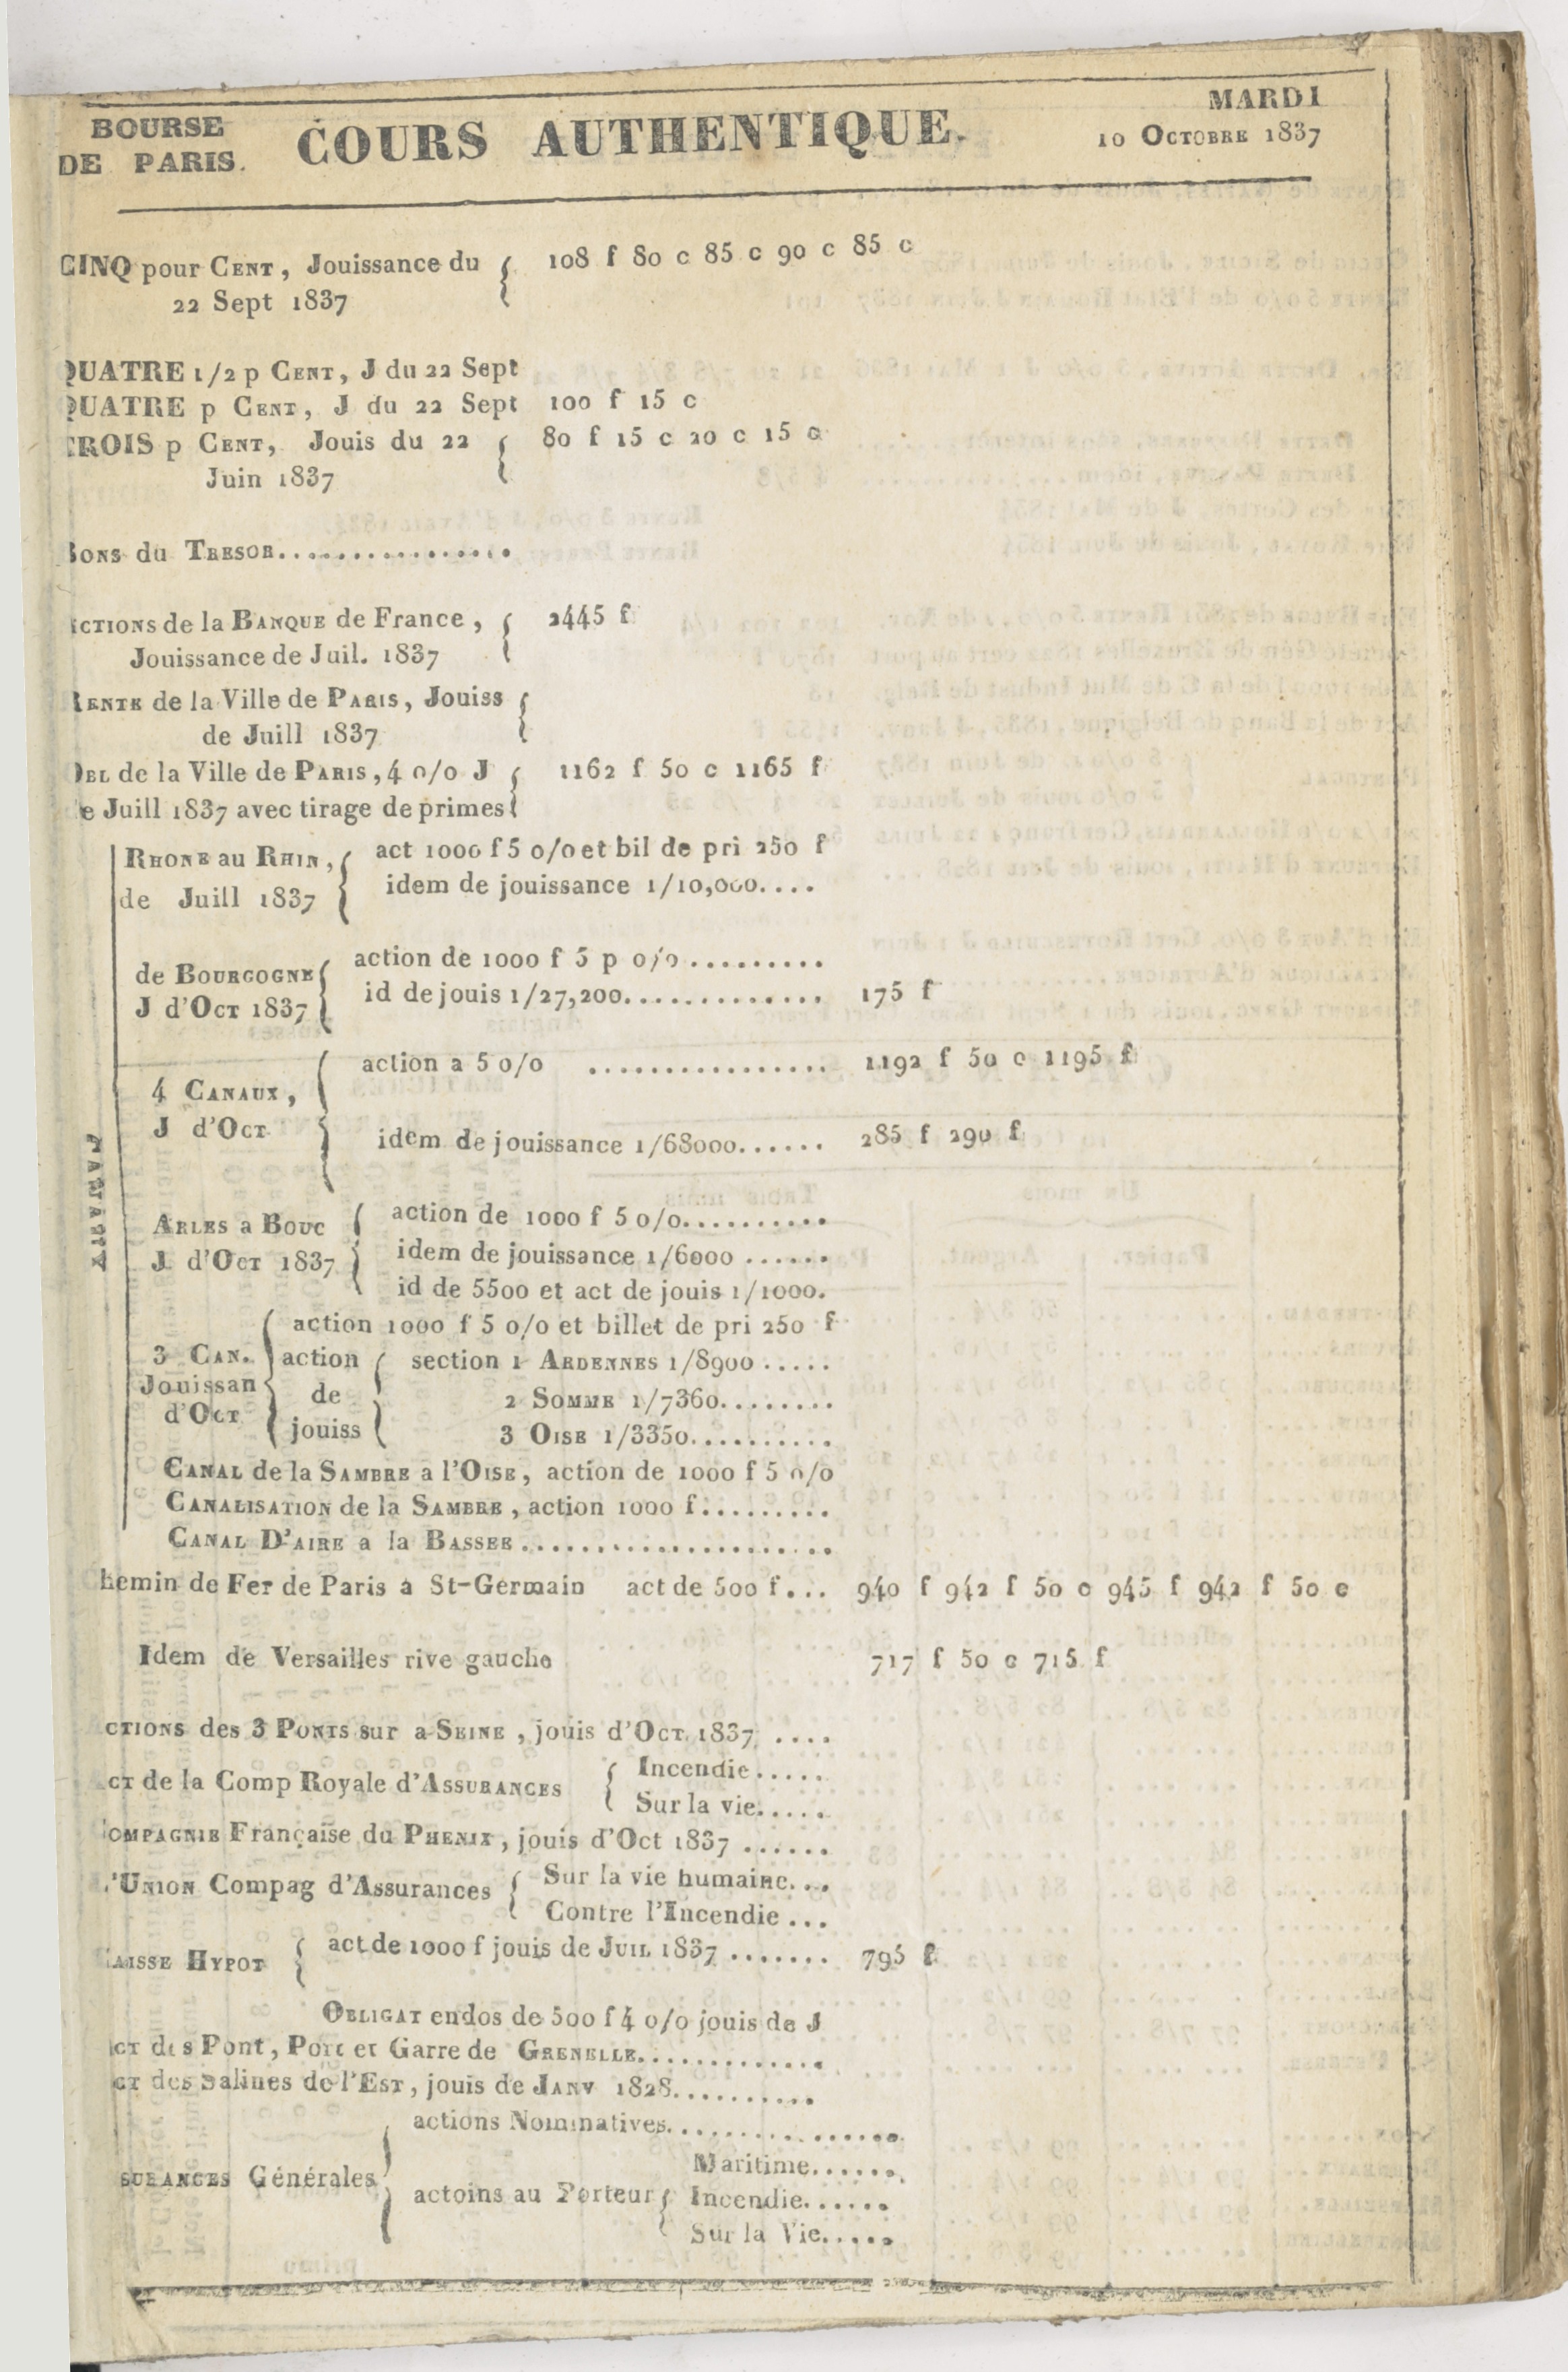 BOURSE
DE PARIS.
COURS AUTHENTIQUE.
MARDI
10 OCTOBRE 1837
CINQ pour CENT, Jouissance du { 108 f 80 c 85 c 90 c 85 c
22 Sept 1837
QUATRE 1/2 p CENT, J du 22 Sept
QUATRE p CENT, J du 22 Sept 100 f 15 c
TROIS p CENT, Jouis du 22 { 80 f 15 c 20 c 15 c
Juin 1837
BONS du TRESOR................
ACTIONS de la BANQUE de France, { 2445 f
Jouissance de Juil. 1837
RENTE de la Ville de PARIS, Jouiss {
de Juill 1837
OBL de la Ville de PARIS, 4 0/0 J { 1162 f 50 c 1165 f
de Juill 1837 avec tirage de primes
CANAUX
RHONE au RHIN, { act 1000 f 5 0/0 et bil de pri 250 f
de Juill 1837 idem de jouissance 1/10,000....
de BOURGOGNE { action de 1000 f 5 p 0/0.........
J d'OCT 1837 id de jouis 1/27,200............. 175 f
4 CANAUX, { action a 5 0/0 ................ 1192 f 50 c 1195 f
J d'OCT idem de jouissance 1/68000...... 285 f 290 f
ARLES a BOUC { action de 1000 f 5 0/0..........
J d'OCT 1837 idem de jouissance 1/6000 ......
id de 5500 et act de jouis 1/1000.
action 1000 f 5 0/0 et billet de pri 250 f
3 CAN. { action { section 1 ARDENNES 1/8900 .....
Jouissan de 2 SOMME 1/7360........
d'OCT jouiss 3 OISE 1/3350..........
CANAL de la SAMBRE a l'OISE, action de 1000 f 5 0/0
CANALISATION de la SAMBRE, action 1000 f.........
CANAL D'AIRE a la BASSEE.....................
hemin de Fer de Paris a St-Germain act de 500 f... 940 f 942 f 50 c 945 f 942 f 50 c
Idem de Versailles rive gauche 717 f 50 c 715 f
CTIONS des 3 PONTS sur a SEINE, jouis d'OCT. 1837 ....
CT de la Comp Royale d'ASSURANCES { Incendie.....
Sur la vie.....
OMPAGNIE Française du PHENIX, jouis d'Oct 1837 ......
'UNION Compag d'Assurances { Sur la vie humaine...
Contre l'Incendie...
AISSE HYPOT { act de 1000 f jouis de JUIL 1837 ....... 795 f
OBLIGAT endos de 500 f 4 0/0 jouis de J
CT des Pont, Port et Garre de GRENELLE.............
CT des Salines de l'EST, jouis de JANV 1828..........
actions Nominatives................
SURANCES Générales { Maritime.......
actoins au Porteur { Incendie......
Sur la Vie.....